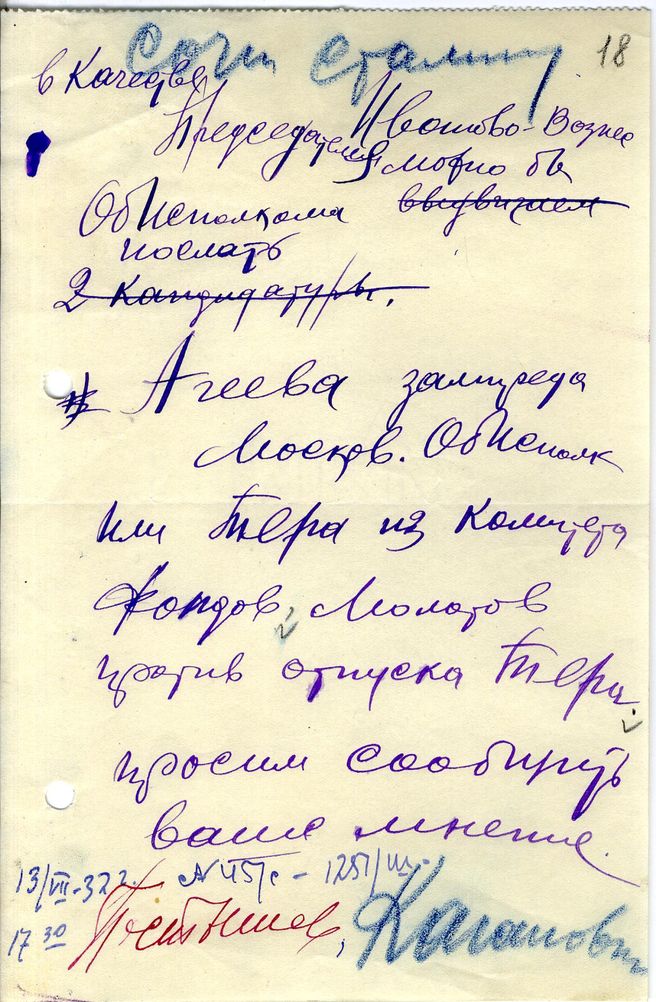 Сочи Сталину
18
в Качестве
Председателя Иваново-Возне
можно бы
ОбИсполкома выдвигаем
послать
2 кандидатуры.
Агеева зампреда
Москов. ОбИсполк
или Тера из Комитета
Фондов, Молотов
против отпуска Тера.
просим сообщить
ваше мнение.
13/VII-32 г. №
17 30
Постышев, Каганович